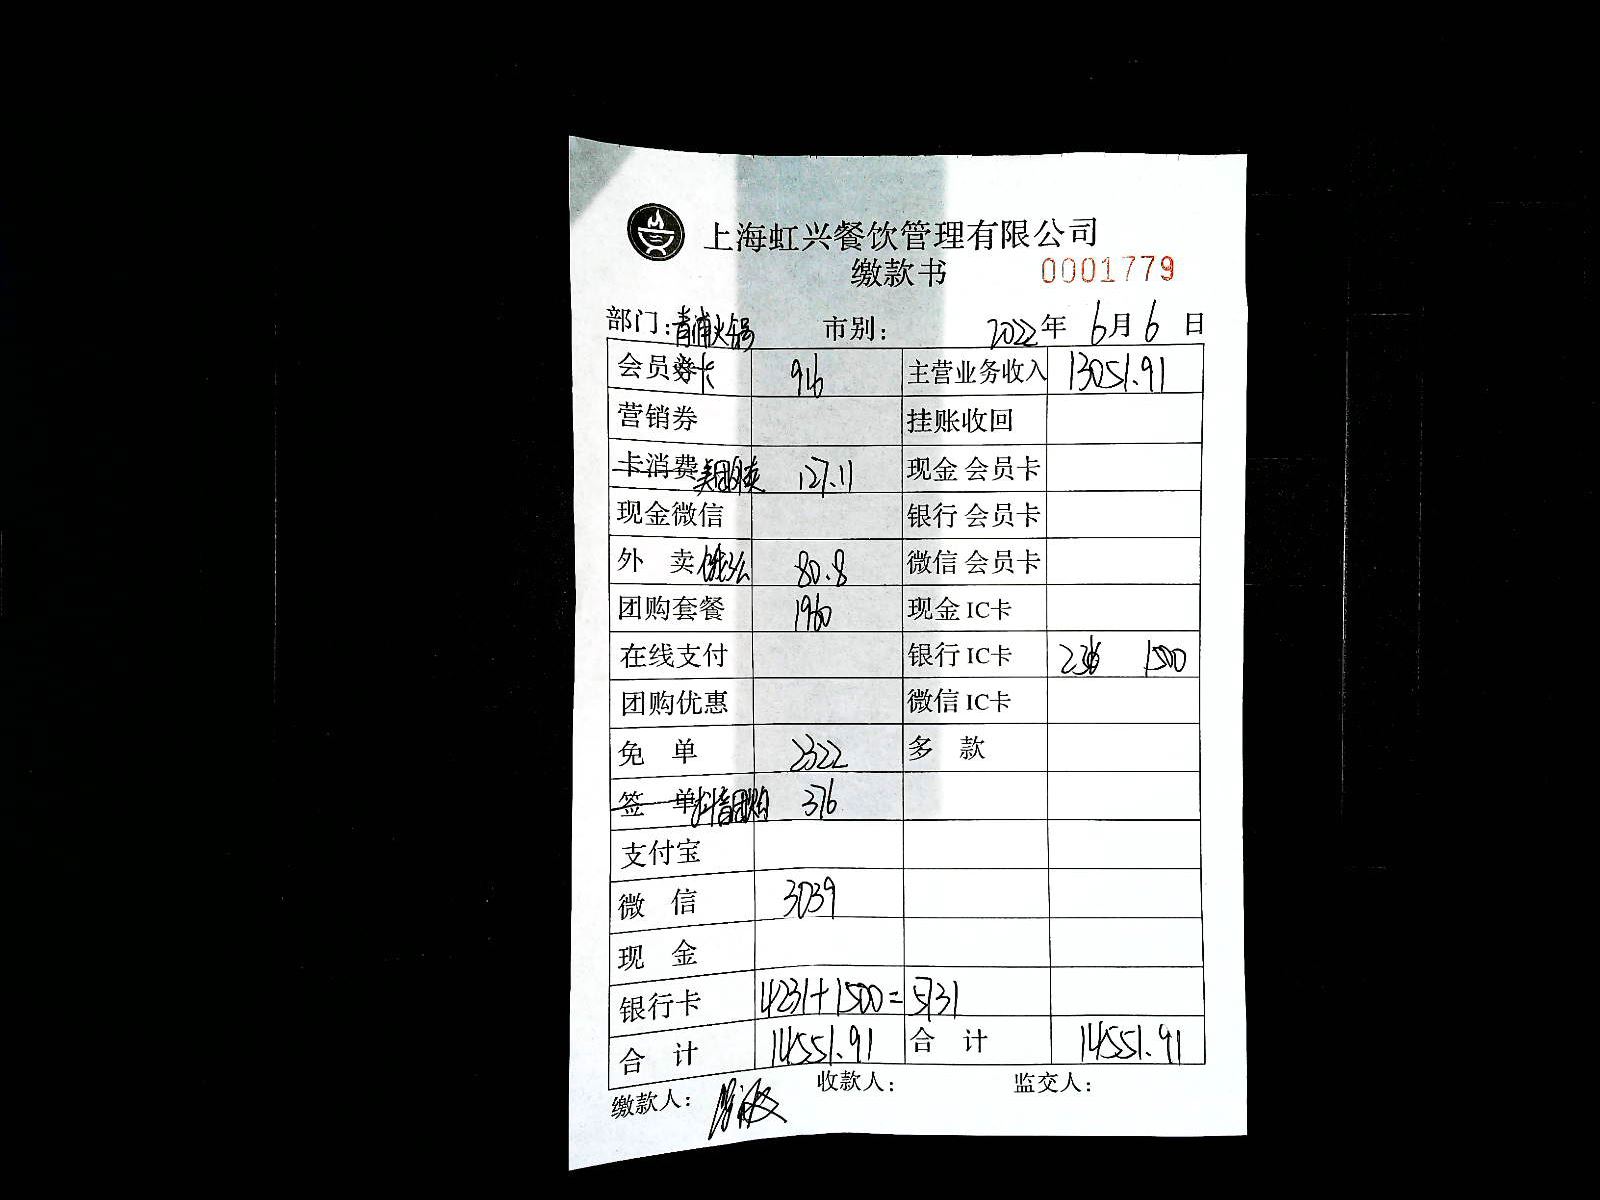 上海虹兴餐饮管理有限公司
缴款书 0001779
部门:青浦火锅 市别: 2022年 6月 6 日
会员券卡 916 主营业务收入 13051.91
营销券 挂账收回
卡消费美团外卖 127.11 现金 会员卡
现金微信 银行 会员卡
外 卖 饿了么 80.8 微信 会员卡
团购套餐 1960 现金 IC卡
在线支付 银行 IC卡 1500
团购优惠 微信 IC卡
免 单 2322 多 款
签 单 抖音团购 376
支付宝
微 信 3039
现 金
银行卡 4231+1500=5731
合 计 14551.91 合 计 14551.91
缴款人: 收款人: 监交人: